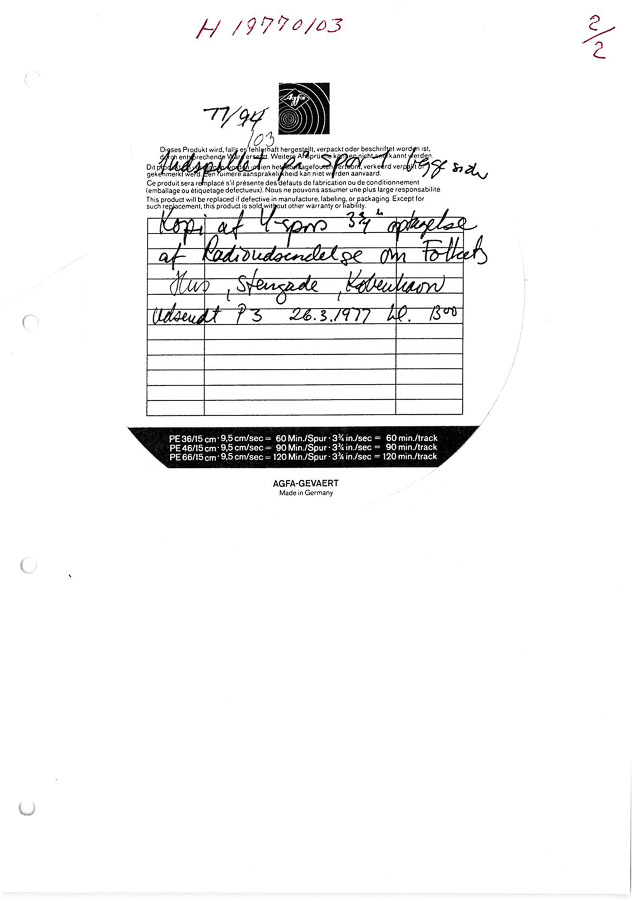 H 19770/03
2/2
Agfa
77/94
/03
Dieses Produkt wird, falls es fehlerhaft hergestellt, verpackt oder beschriftet worden ist,
durch entsprechende Ware ersetzt. Weitere Ansprüche können nicht anerkannt werden.
Indspillet på spor 1 begge sider
gekenmerkt werd. Een ruimere aansprakelijkheid kan niet worden aanvaard.
Ce produit sera remplacé s'il présente des défauts de fabrication ou de conditionnement
(emballage ou étiquetage defectueux). Nous ne pouvons assumer une plus large responsabilité
This product will be replaced if defective in manufacture, labeling, or packaging. Except for
such replacement, this product is sold without other warranty or liability.
Kopi af 4-spors 3¾" optagelse
af Radioudsendelse om Folkets
Hus, Stengade, København
Udsendt P3 26.3.1977 kl. 13⁰⁰
PE 36/15 cm · 9,5 cm/sec = 60 Min./Spur · 3¾ in./sec = 60 min./track
PE 46/15 cm · 9,5 cm/sec = 90 Min./Spur · 3¾ in./sec = 90 min./track
PE 66/15 cm · 9,5 cm/sec = 120 Min./Spur · 3¾ in./sec = 120 min./track
AGFA-GEVAERT
Made in Germany